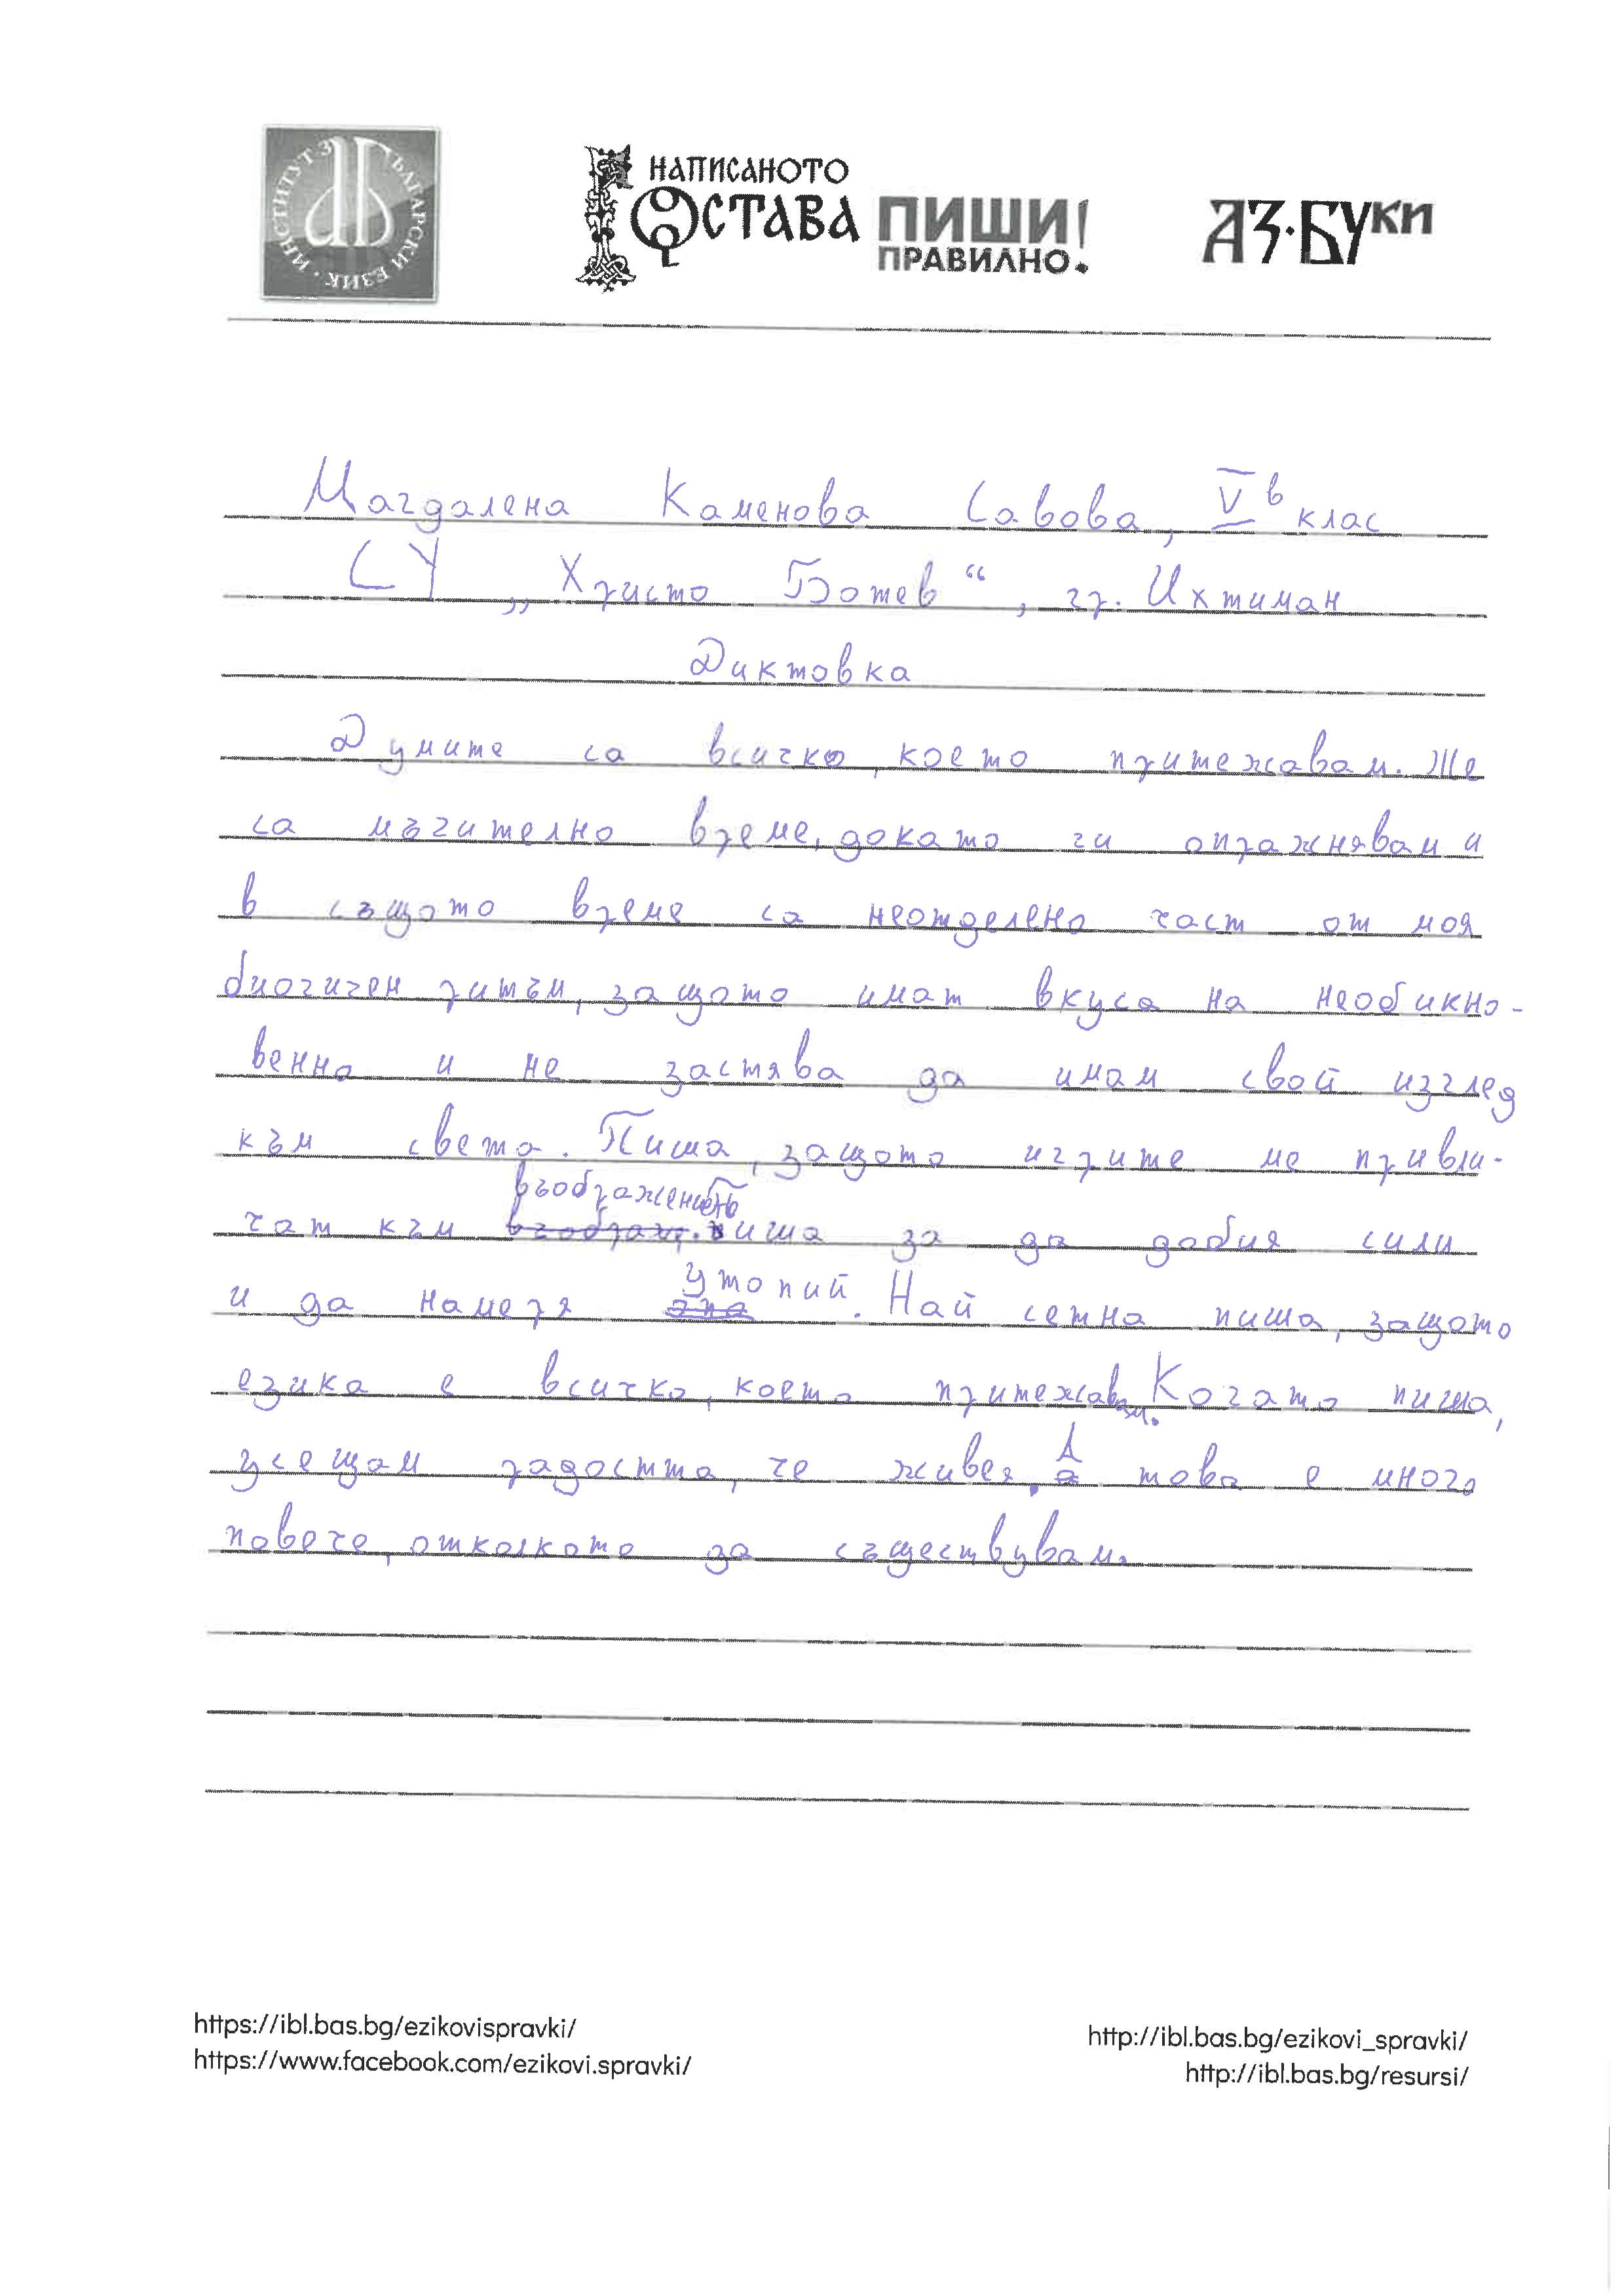 ИНСТИТУТ ЗА БЪЛГАРСКИ ЕЗИК
НАПИСАНОТО
ОСТАВА
ПИШИ!
ПРАВИЛНО.
АЗ·БУКИ
Магдалена Каменова Савова, V в клас
СУ „Христо Ботев“, гр. Ихтиман
Диктовка
Думите са всичко, което притежавам. Те
са мъчително време, докато ги опражнявам и
в същото време са неотделено част от моя
биогичен ритъм, защото имат вкуса на необикно-
венно и не застява да имам свой изглед
към света. Пиша, защото игрите ме привли-
чат към въображеността. Пиша за да добия сили
и да намеря утопий. Най сетна пиша, защото
езика е всичко, което притежавам. Когато пиша,
усещам радостта, че живея. А това е много
повече, отколкото за съществувам.
https://ibl.bas.bg/ezikovispravki/
https://www.facebook.com/ezikovi.spravki/
http://ibl.bas.bg/ezikovi_spravki/
http://ibl.bas.bg/resursi/